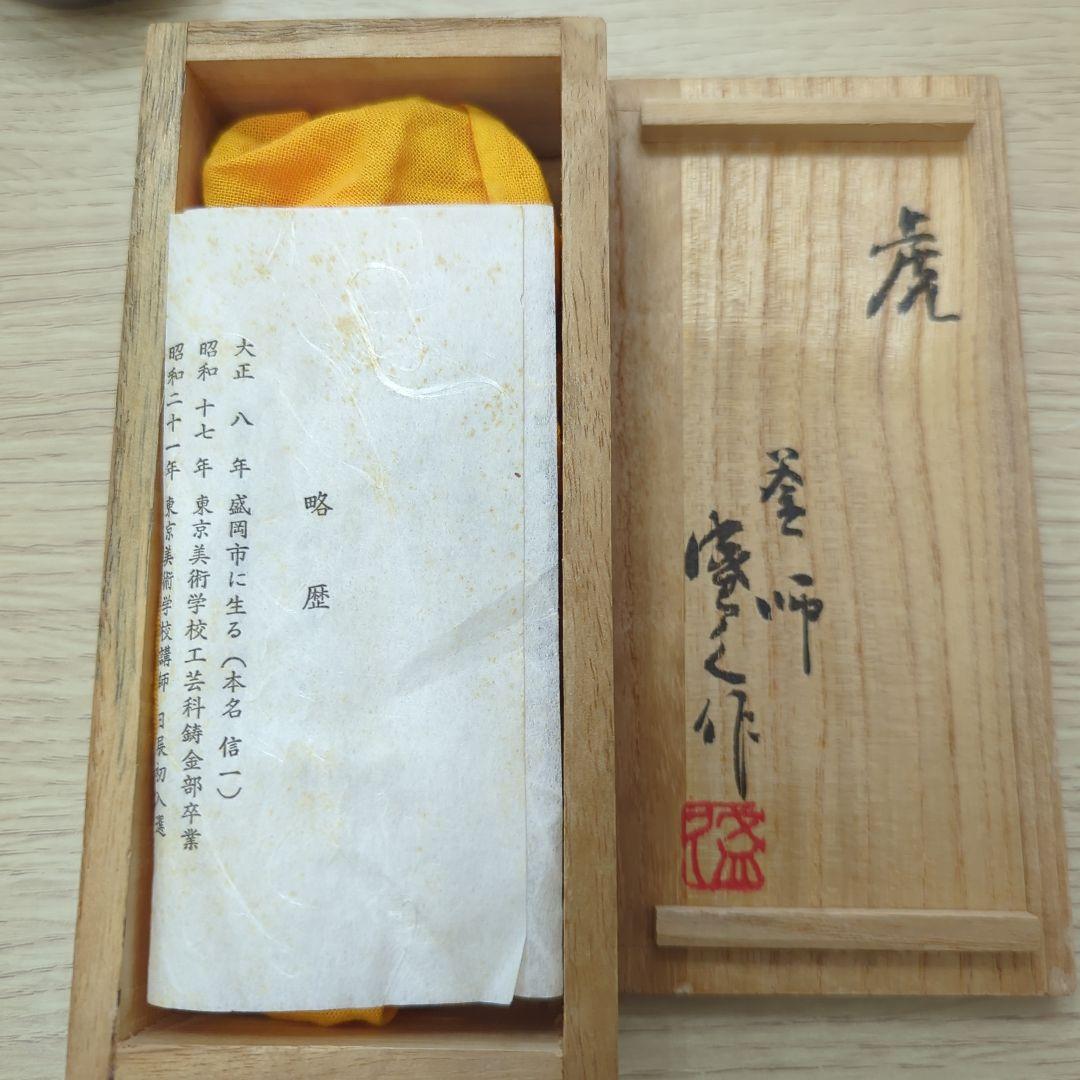 虎
釜師
作
盛
略歴
大正八年 盛岡市に生る(本名 信一)
昭和十七年 東京美術学校工芸科鋳金部卒業
昭和二十一年 東京美術学校講師 日展初入選